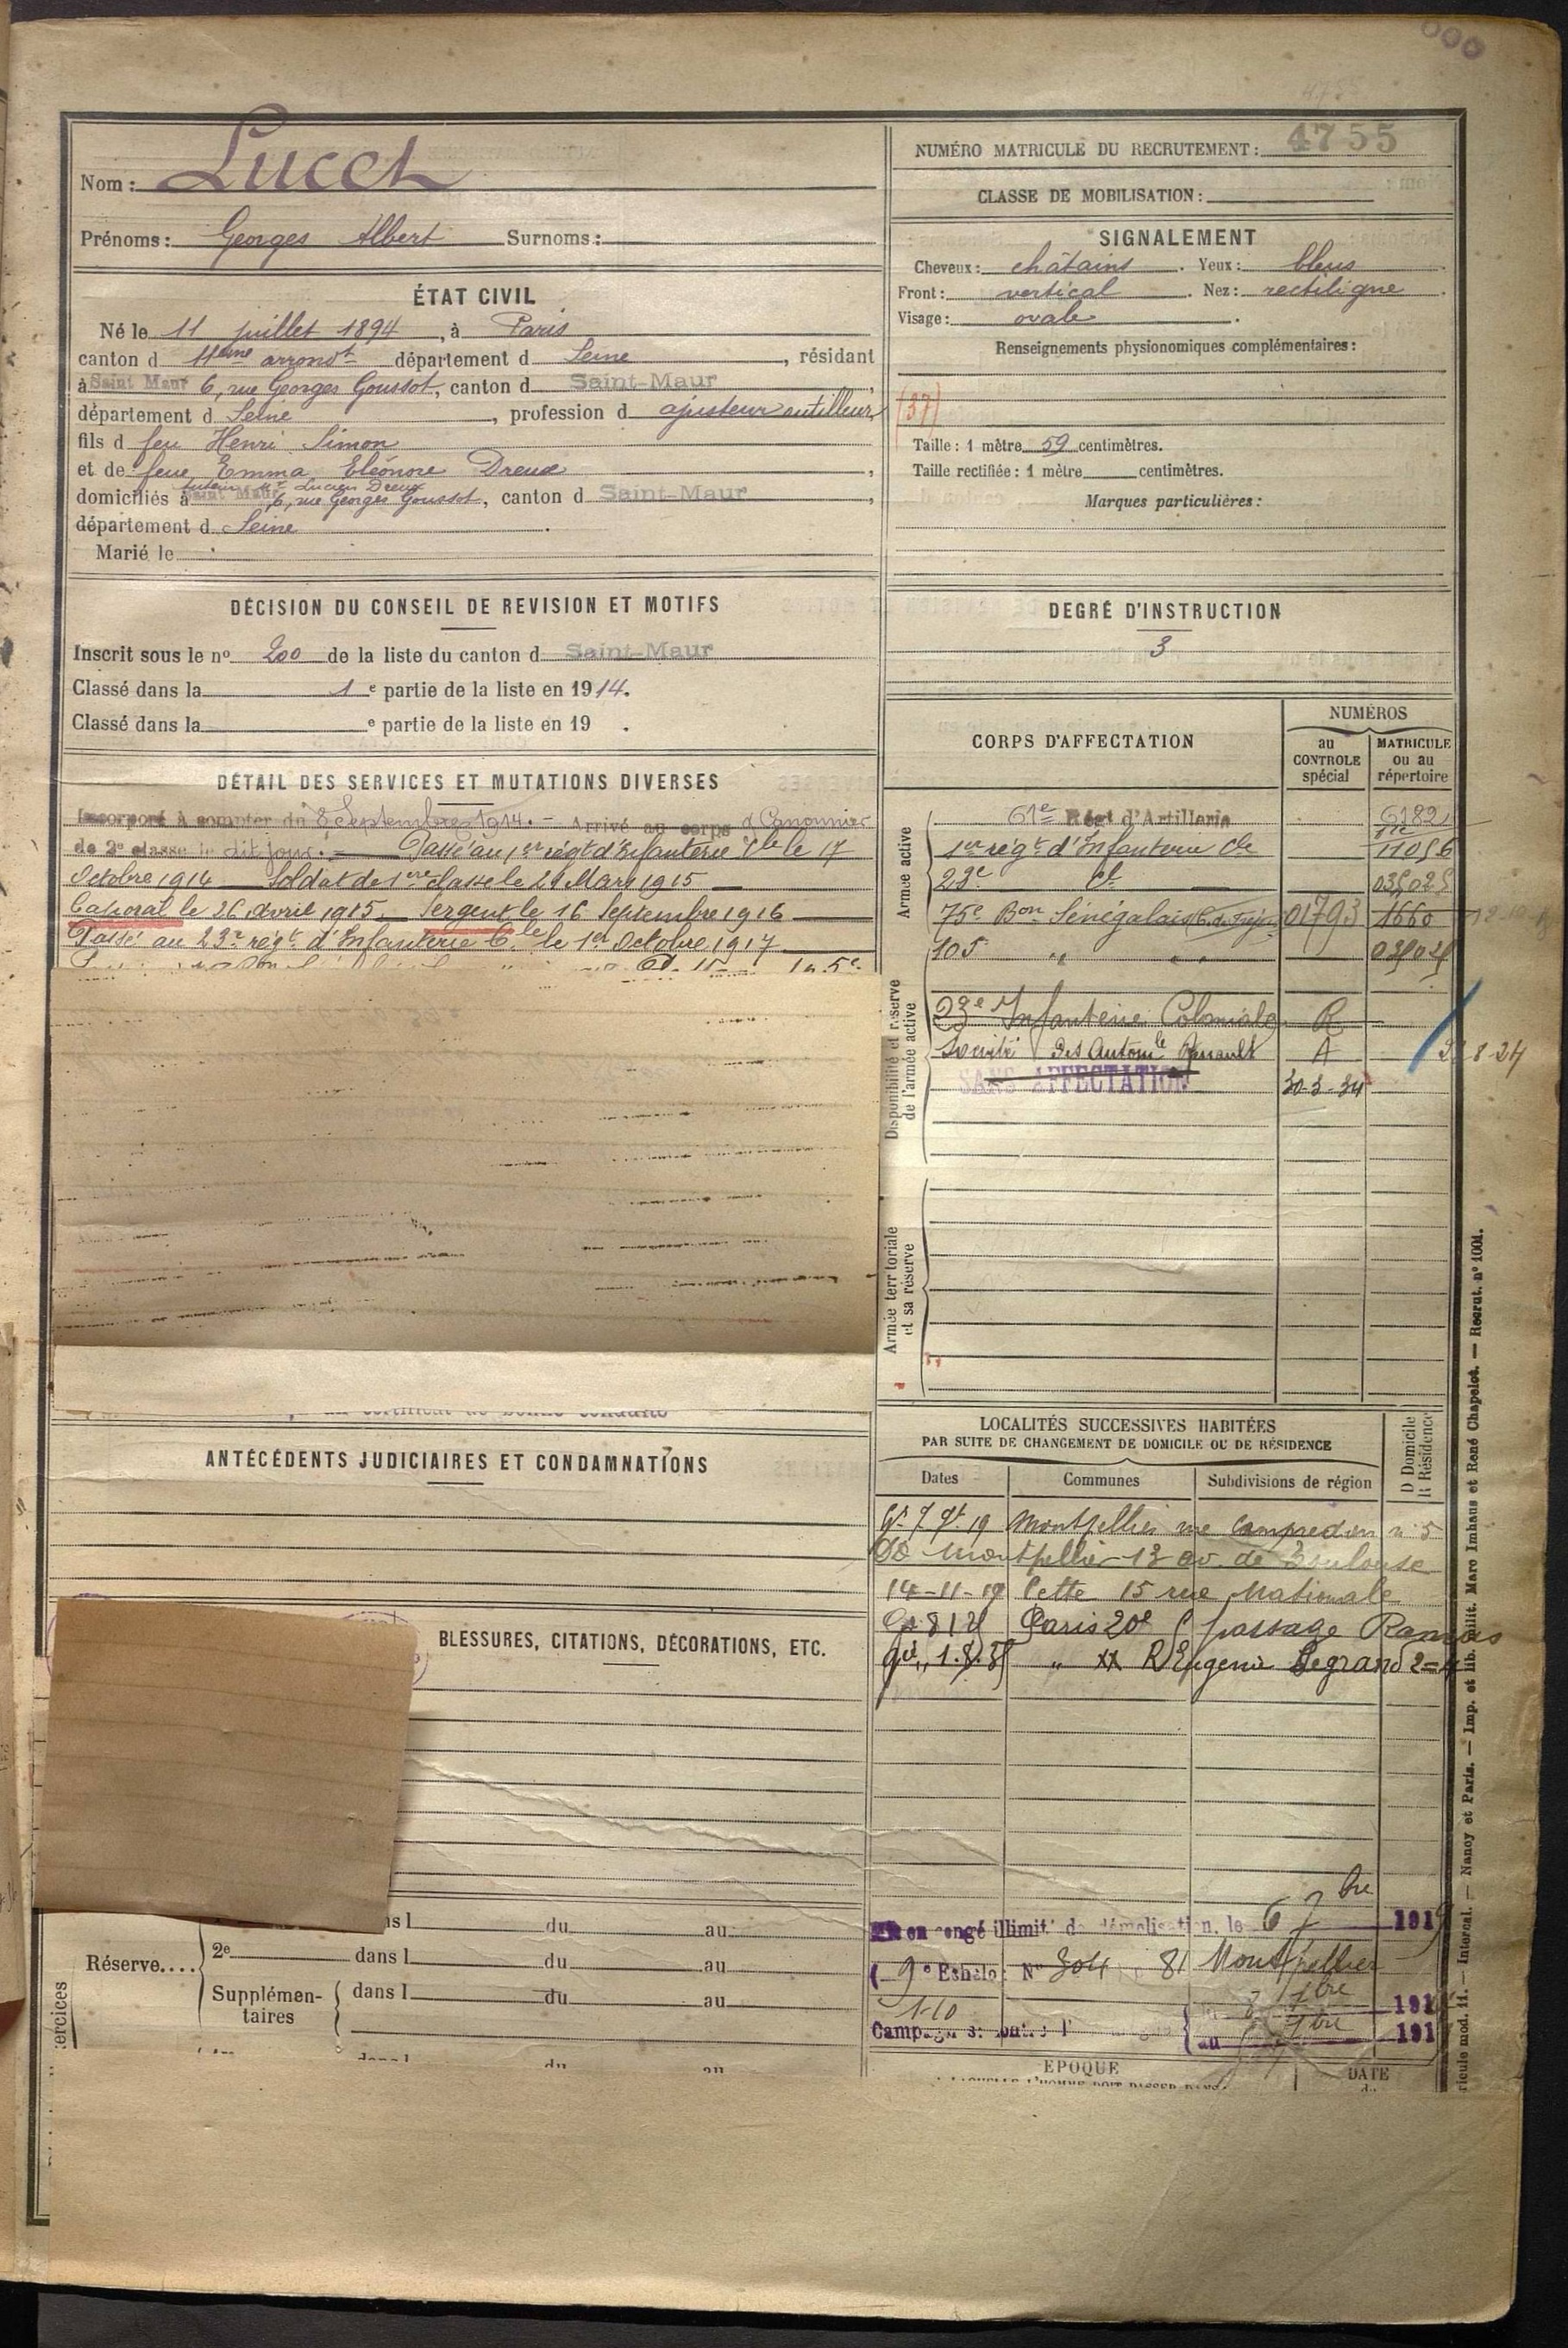 Nom : Lucet
Prénoms : Georges Albert Surnoms :
ÉTAT CIVIL
Né le 11 juillet 1894, à Paris
canton d 11eme arrondt département d Seine, résidant
à Saint Maur 6, rue Georges Goussot, canton d Saint-Maur,
département d Seine, profession d ajusteur outilleur,
fils d feu Henri Simon
et de feue Emma Eléonore Dreux,
tuteur Mr Lucien Dreux
domiciliés à Saint Maur 6, rue Georges Goussot, canton d Saint-Maur,
département d Seine.
Marié le
DÉCISION DU CONSEIL DE REVISION ET MOTIFS
Inscrit sous le no 200 de la liste du canton d Saint-Maur
Classé dans la 1e partie de la liste en 1914.
Classé dans la e partie de la liste en 19 .
DÉTAIL DES SERVICES ET MUTATIONS DIVERSES
Incorporé à compter du 8 Septembre 1914. - Arrivé au corps & Canonnier
de 2e classe le dit jour. - Passé au 1er régt d'Infanterie Cle le 17
Octobre 1914 - Soldat de 1ere classe le 29 Mars 1915 -
Caporal le 26 Avril 1915 - Sergent le 16 Septembre 1916
Passé au 23e régt d'Infanterie Cle le 1er Octobre 1917
certificat de bonne conduite
ANTÉCÉDENTS JUDICIAIRES ET CONDAMNATIONS
BLESSURES, CITATIONS, DÉCORATIONS, ETC.
dans l du au
Réserve.... 2e dans l du au
Supplémentaires dans l du au
dans l du au
NUMÉRO MATRICULE DU RECRUTEMENT : 4755
CLASSE DE MOBILISATION :
SIGNALEMENT
Cheveux : châtains. Yeux : bleus.
Front : vertical. Nez : rectiligne.
Visage : ovale.
Renseignements physionomiques complémentaires :
(37)
Taille : 1 mètre 59 centimètres.
Taille rectifiée : 1 mètre centimètres.
Marques particulières :
DEGRÉ D'INSTRUCTION
3
CORPS D'AFFECTATION
NUMÉROS
au CONTROLE spécial
MATRICULE ou au répertoire
Armée active
61e Régt d'Artillerie 6182
1er régt d'Infanterie Cle 11056
23e d°
75e Bon Sénégalais 01793 1660
105 " "
Disponibilité et réserve de l'armée active
23e Infanterie Coloniale R
Société des Automle Renault A
SANS AFFECTATION 30-3-34
Armée territoriale et sa réserve
LOCALITÉS SUCCESSIVES HABITÉES
PAR SUITE DE CHANGEMENT DE DOMICILE OU DE RÉSIDENCE
Dates Communes Subdivisions de région
D Domicile R Résidence
Montpellier rue Campredon n° 5
Montpellier 13 av. de Toulouse
14-11-19 Cette 15 rue Nationale
Paris 20e passage
" XX R Eugenie Legrand 2-4
Mis en congé illimité de démobilisation, le 6 7bre 1919
(9e Echelon No 304 81 Montpellier
Campagne contre l'
au 191
EPOQUE
DATE
Marc Imhaus et René Chapelot. — Recrut. no 1001.
Internal. — Nancy et Paris. — Imp. et lib. milit.